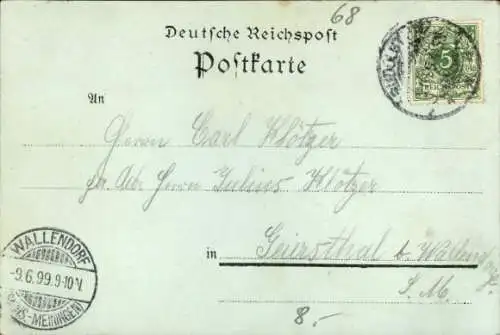 68
Deutsche Reichspost
Postkarte
5
REICHSPOST
An
Herrn Carl Klötzer
pr. Adr. Herrn Julius Klötzer
in Geiersthal b. Wallendorf
S. M.
WALLENDORF
-9.6.99.9-10V.
(SACHS.-MEININGEN)
8.-